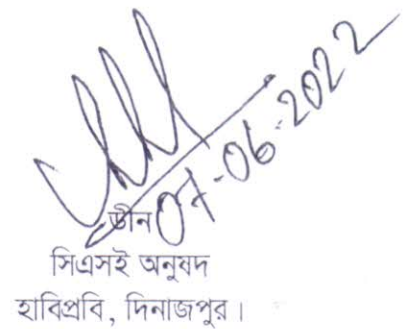 07-06-2022
ডীন
সিএসই অনুষদ
হাবিপ্রবি, দিনাজপুর।